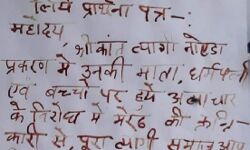 लिये प्रार्थना पत्र -:
महोदय,
श्रीकांत त्यागी नोएडा
प्रकरण में उनकी माता, धर्मपत्नी
एवं बच्चों पर हुये अत्याचार
के विरोध में मेरठ की क्रान्ति-
कारी से पूरा त्यागी समाज आप